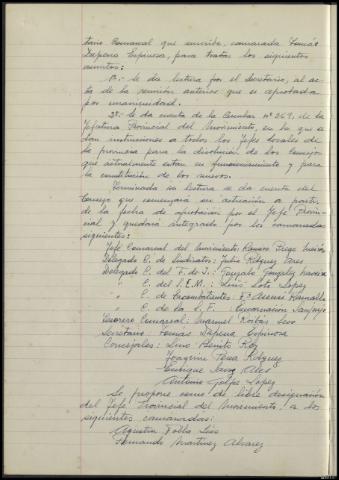 tario Comarcal que suscribe, camarada Tomás
Dapena Espinosa, para tratar los siguientes
asuntos:
1º.- Se da lectura por el Secretario, al ac-
ta de la reunión anterior que es aprobada
por unanimidad.
2º.- Se da cuenta de la Circular nº 269, de la
Jefatura Provincial del Movimiento, en la que se
dan instrucciones a todos los Jefes Locales de
la provincia para la disolución de los Consejos
que actualmente están en funcionamiento y para
la constitución de los nuevos.
Terminada su lectura se da cuenta del
Consejo que comenzará su actuación a partir
de la fecha de aprobación por el Jefe Provin-
cial y quedará integrado por los camaradas
siguientes:
Jefe Comarcal del Movimiento: Ramiro
Delegado C. de Sindicatos: Julio Rodguez
Delegado C. del F. de J.: Gonzalo González
" C. del S.E.M.: Luis Soto López
" C. de Excombatientes:
" C. de la S. F.: Encarnación
Tesorero Comarcal: Manuel
Secretario: Tomás Dapena Espinosa
Concejales: Lino Benito
Joaquina Pena Rodguez
Enrique
Antonio López
Se propone como de libre designación
del Jefe Provincial del Movimiento, a los
siguientes camaradas:
Agustín
Fernando Martínez Alvarez